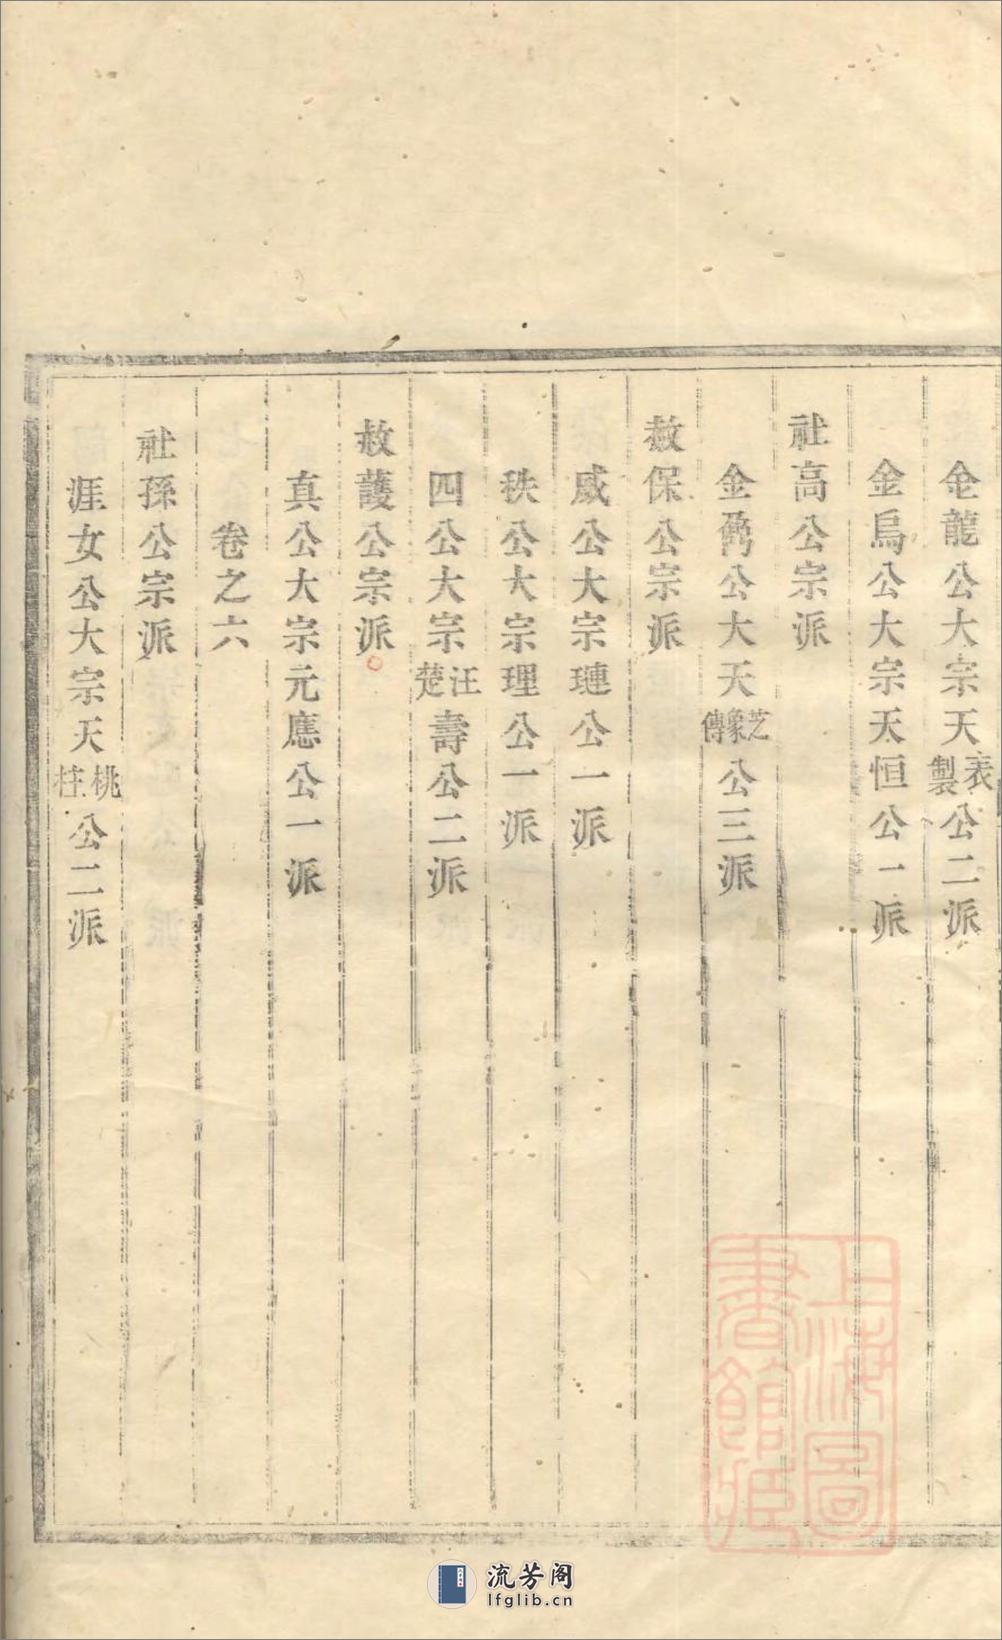 金龍公大宗天表製公二派
金烏公大宗天恒公一派
社高公宗派
金公大天芝象傳公三派
赦保公宗派
威公大宗璉公一派
秩公大宗理公一派
四公大宗汪楚壽公二派
赦護公宗派
真公大宗元應公一派
卷之六
社孫公宗派
涯女公大宗天桃柱公二派
上海圖書館藏
流芳阁
lfglib.cn